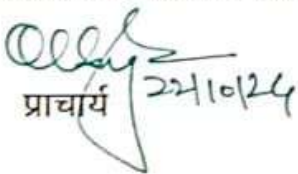 प्राचार्य 22/10/24